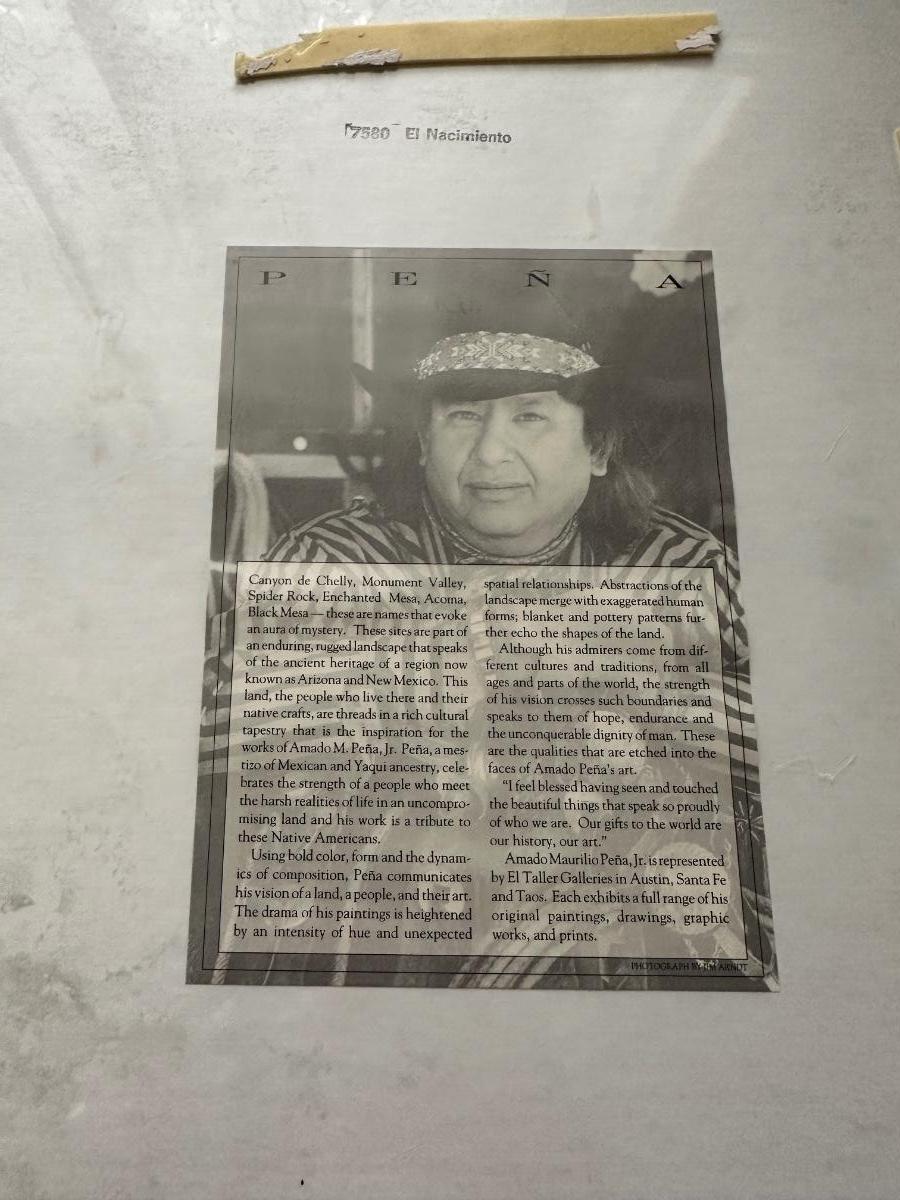 7580 El Nacimiento
P E Ñ A
Canyon de Chelly, Monument Valley,
Spider Rock, Enchanted Mesa, Acoma,
Black Mesa — these are names that evoke
an aura of mystery. These sites are part of
an enduring, rugged landscape that speaks
of the ancient heritage of a region now
known as Arizona and New Mexico. This
land, the people who live there and their
native crafts, are threads in a rich cultural
tapestry that is the inspiration for the
works of Amado M. Peña, Jr. Peña, a mes-
tizo of Mexican and Yaqui ancestry, cele-
brates the strength of a people who meet
the harsh realities of life in an uncompro-
mising land and his work is a tribute to
these Native Americans.
Using bold color, form and the dynam-
ics of composition, Peña communicates
his vision of a land, a people, and their art.
The drama of his paintings is heightened
by an intensity of hue and unexpected
spatial relationships. Abstractions of the
landscape merge with exaggerated human
forms; blanket and pottery patterns fur-
ther echo the shapes of the land.
Although his admirers come from dif-
ferent cultures and traditions, from all
ages and parts of the world, the strength
of his vision crosses such boundaries and
speaks to them of hope, endurance and
the unconquerable dignity of man. These
are the qualities that are etched into the
faces of Amado Peña's art.
"I feel blessed having seen and touched
the beautiful things that speak so proudly
of who we are. Our gifts to the world are
our history, our art."
Amado Maurilio Peña, Jr. is represented
by El Taller Galleries in Austin, Santa Fe
and Taos. Each exhibits a full range of his
original paintings, drawings, graphic
works, and prints.
PHOTOGRAPH BY JIM ARNDT